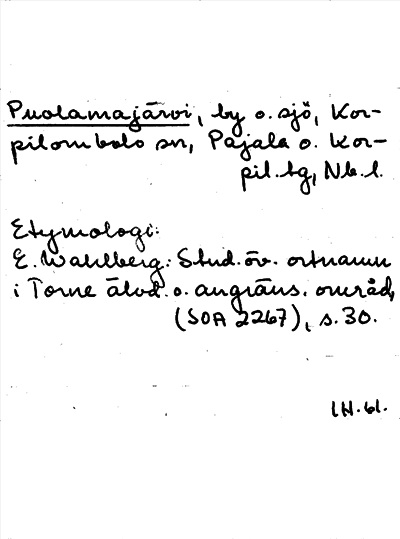 Puolamajärvi, by o. sjö, Kor-
pilombolo sn, Pajala o. Kor-
pil. tg, Nb. l.
Etymologi:
E. Wahlberg: Stud. öv. ortnamn
i Torne älvd. o. angräns. områd,
(SOA 2267), s. 30.
IH. 61.